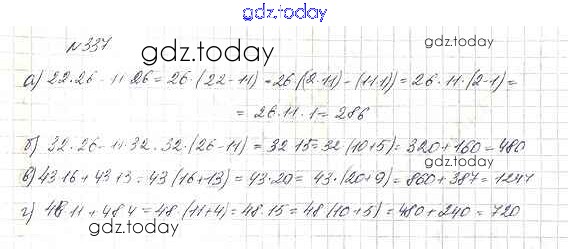 gdz.today
№337
gdz.today
gdz.today
а) 22·26 - 11·26 = 26·(22-11) = 26·((2·11)-(11·1)) = 26·11·(2-1) =
= 26·11·1 = 286
б) 32·26 - 11·32 = 32·(26-11) = 32·15 = 32·(10+5) = 320+160 = 480
gdz.today
в) 43·16 + 43·13 = 43·(16+13) = 43·29 = 43·(20+9) = 860+387 = 1247
г) 48·11 + 48·4 = 48·(11+4) = 48·15 = 48·(10+5) = 480+240 = 720
gdz.today